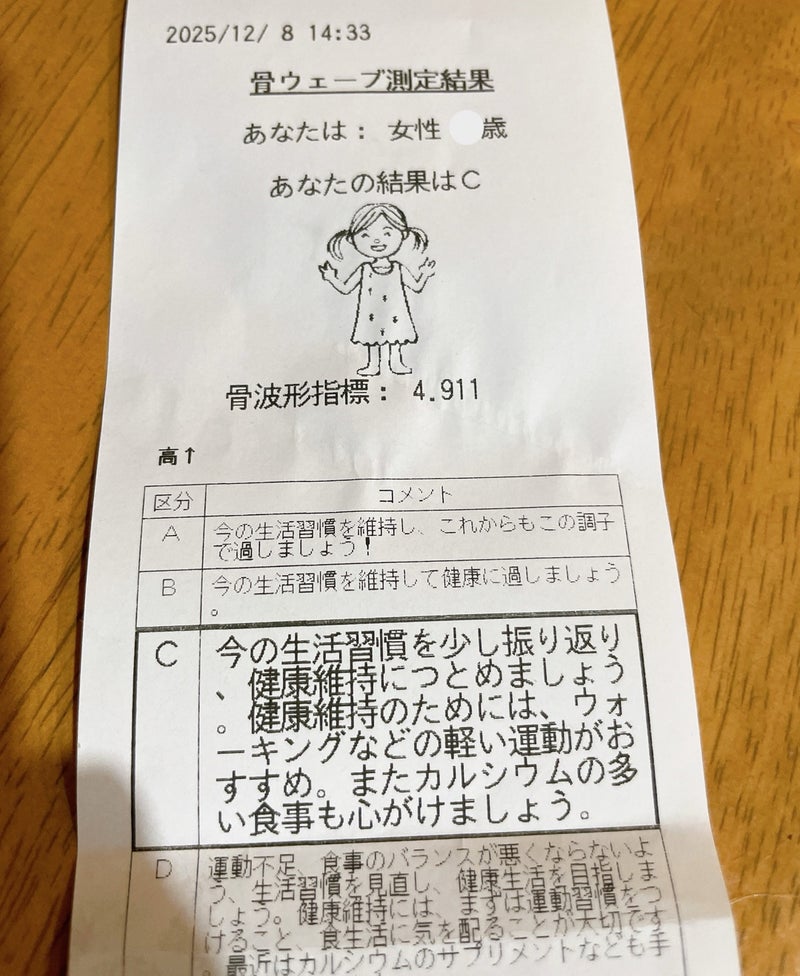 2025/12/ 8 14:33
骨ウェーブ測定結果
あなたは： 女性 歳
あなたの結果はC
骨波形指標： 4.911
高↑
区分 コメント
A 今の生活習慣を維持し、これからもこの調子
で過しましょう！
B 今の生活習慣を維持して健康に過しましょう
。
C 今の生活習慣を少し振り返り
、健康維持につとめましょう
。健康維持のためには、ウォ
ーキングなどの軽い運動がお
すすめ。またカルシウムの多
い食事も心がけましょう。
D 運動不足、食事のバランスが悪くならないよ
う、生活習慣を見直し、健康生活を目指しま
しょう。健康維持には、まずは運動習慣をつ
けること、食生活に気を配ることが大切です
。最近はカルシウムのサプリメントなども手